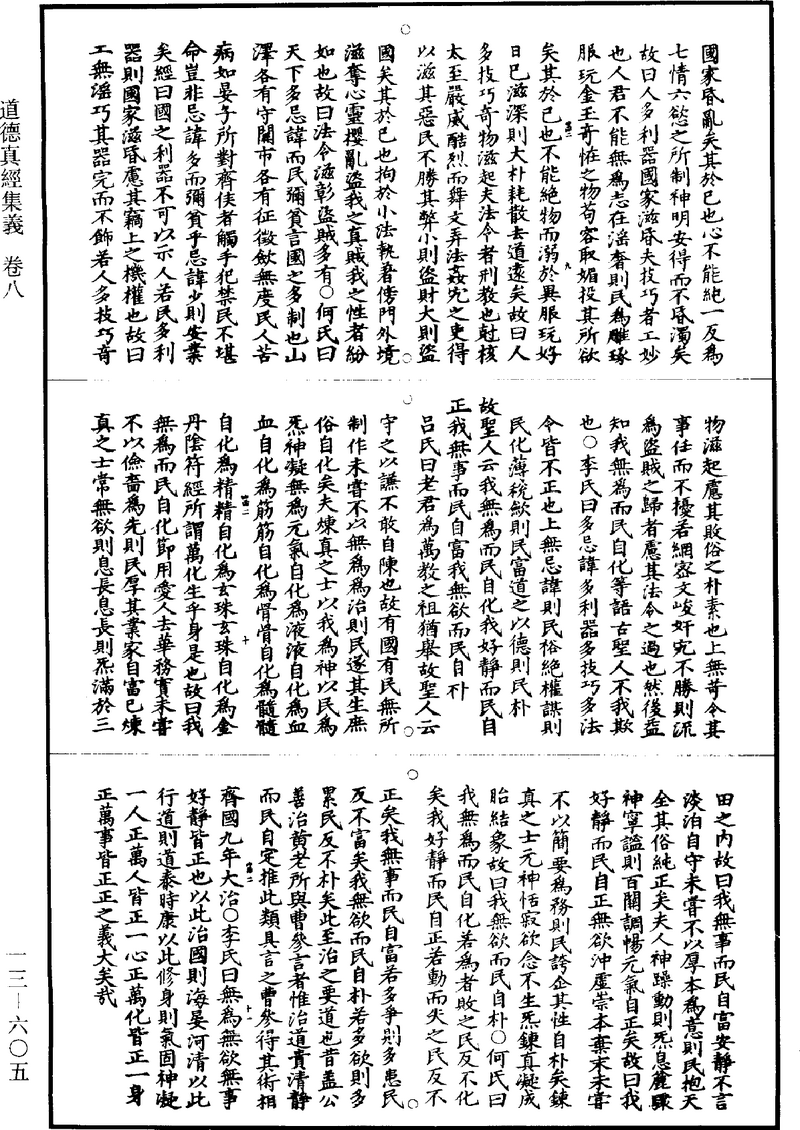 國家昏亂矣其於已也心不能絕一反為
七情六慾之所制神明安得而不昏濁矣
故曰人多利器國家滋昏夫技巧者工妙
也人君不能無為志在滛奢則民為雕琢
服玩金玉奇恠之物苟容取媚投其所欲
矣其於已也不能絕物而溺於異服玩好
日已滋深則大朴耗散去道遠矣故曰人
多技巧奇物滋起夫法令者刑教也尅核
太至嚴威酷烈而舞文弄法姦宄之吏得
以滋其惡民不勝其弊小則盜財大則盜
國矣其於已也拘於小法執著傍門外境
滋奪心靈攖亂盜我之真賊我之性者紛
如也故曰法令滋彰盜賊多有○何氏曰
天下多忌諱而民彌貧言國之多制也山
澤各有守關市各有征徵歛無度民人苦
病如晏子所對齊侯者觸手犯禁民不堪
命豈非忌諱多而彌貧乎忌諱少則安業
矣經曰國之利器不可以示人若民多利
器則國家滋昏慮其竊上之機權也故曰
工無滛巧其器完而不飾若人多技巧奇
物滋起慮其敗俗之朴素也上無苛令其
事任而不擾若網密文峻奸宄不勝則流
為盜賊之歸者慮其法令之過也然後益
知我無為而民自化等語古聖人不我欺
也○李氏曰多忌諱多利器多技巧多法
令皆不正也上無忌諱則民裕絕權謀則
民化薄稅歛則民富道之以德則民朴
故聖人云我無為而民自化我好靜而民自
正我無事而民自富我無欲而民自朴
呂氏曰老君為萬教之祖猶舉故聖人云
守之以謙不敢自陳也故有國有民無所
制作未嘗不以無為為治則民遂其生庶
俗自化矣夫煉真之士以我為神以民為
炁神凝無為元氣自化為液液自化為血
血自化為筋筋自化為骨骨自化為髓髓
自化為精精自化為玄珠玄珠自化為金
丹陰符經所謂萬化生乎身是也故曰我
無為而民自化節用愛人去華務實未嘗
不以儉嗇為先則民厚其業家自富已煉
真之士常無欲則息長息長則炁滿於三
田之内故曰我無事而民自富安靜不言
淡泊自守未嘗不以厚本為意則民抱天
全其俗純正矣夫人神躁動則炁息麄驟
神寧謐則百關調暢元氣自正矣故曰我
好靜而民自正無欲沖虛崇本棄末未嘗
不以簡要為務則民誇企其性自朴矣鍊
真之士元神恬寂欲念不生炁鍊真凝成
胎結象故曰我無欲而民自朴○何氏曰
我無為而民自化若為者敗之民反不化
矣我好靜而民自正若動而失之民反不
正矣我無事而民自富若多爭則多患民
反不富矣我無欲而民自朴若多欲則多
累民反不朴矣此至治之要道也昔蓋公
善治黄老所與曹參言者惟治道貴清靜
而民自定推此類具言之曹參得其術相
齊國九年大治○李氏曰無為無欲無事
好靜皆正也以此治國則海晏河清以此
行道則道泰時康以此修身則氣固神凝
一人正萬人皆正一心正萬化皆正一身
正萬事皆正正之義大矣哉
道德真經集義　卷八
一三—六〇五